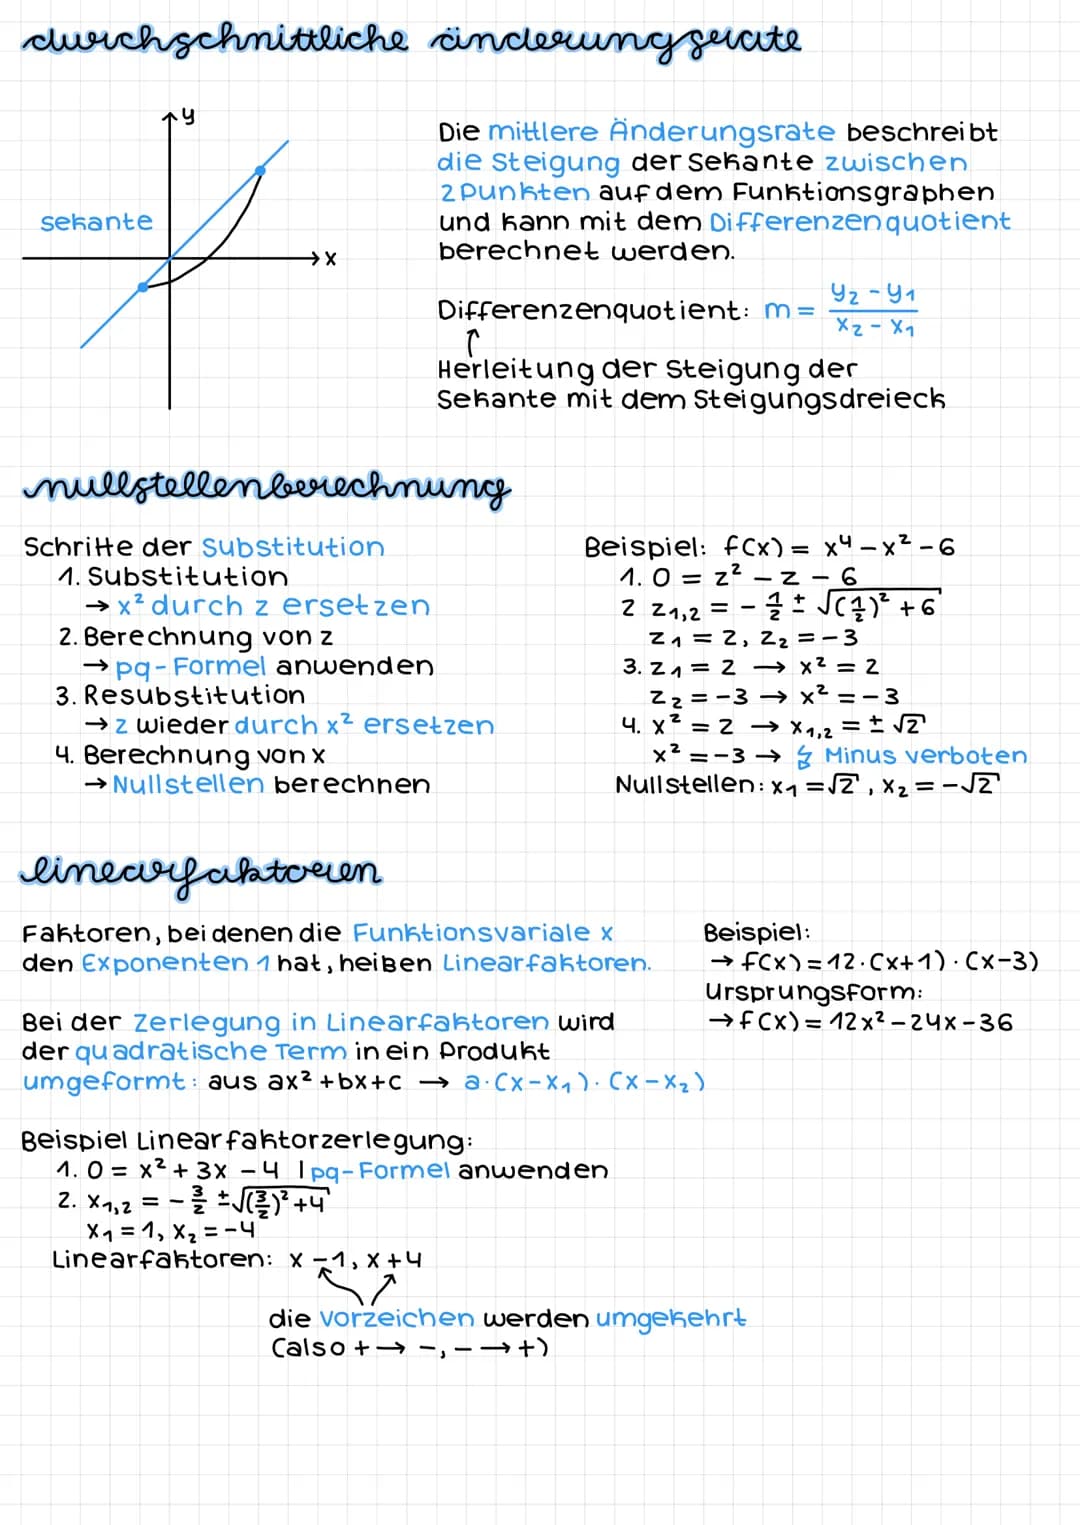 durchschnittliche änderungsrate
y
sekante
x
Die mittlere Änderungsrate beschreibt
die Steigung der Sekante zwischen
2 Punkten auf dem Funktionsgraphen
und kann mit dem Differenzenquotient
berechnet werden.
Differenzenquotient: m = (y₂ - y₁)/(x₂ - x₁)
↑
Herleitung der Steigung der
Sekante mit dem Steigungsdreieck
nullstellenberechnung
Schritte der Substitution
1. Substitution
→ x² durch z ersetzen
2. Berechnung von z
→ pq-Formel anwenden
3. Resubstitution
→ z wieder durch x² ersetzen
4. Berechnung von x
→ Nullstellen berechnen
Beispiel: f(x) = x⁴ - x² - 6
1. 0 = z² - z - 6
2 z₁,₂ = - 1/2 ± √((1/2)² + 6)
z₁ = 2, z₂ = -3
3. z₁ = 2 → x² = 2
z₂ = -3 → x² = -3
4. x² = 2 → x₁,₂ = ± √2
x² = -3 → ↯ Minus verboten
Nullstellen: x₁ = √2, x₂ = -√2
linearfaktoren
Faktoren, bei denen die Funktionsvariale x
den Exponenten 1 hat, heißen Linearfaktoren.
Bei der Zerlegung in Linearfaktoren wird
der quadratische Term in ein Produkt
umgeformt: aus ax² + bx + c → a · (x - x₁) · (x - x₂)
Beispiel:
→ f(x) = 12 · (x+1) · (x-3)
Ursprungsform:
→ f(x) = 12x² - 24x - 36
Beispiel Linearfaktorzerlegung:
1. 0 = x² + 3x - 4 | pq-Formel anwenden
2. x₁,₂ = - 3/2 ± √((3/2)² + 4)
x₁ = 1, x₂ = -4
Linearfaktoren: x - 1, x + 4
die Vorzeichen werden umgekehrt
(also + → -, - → +)